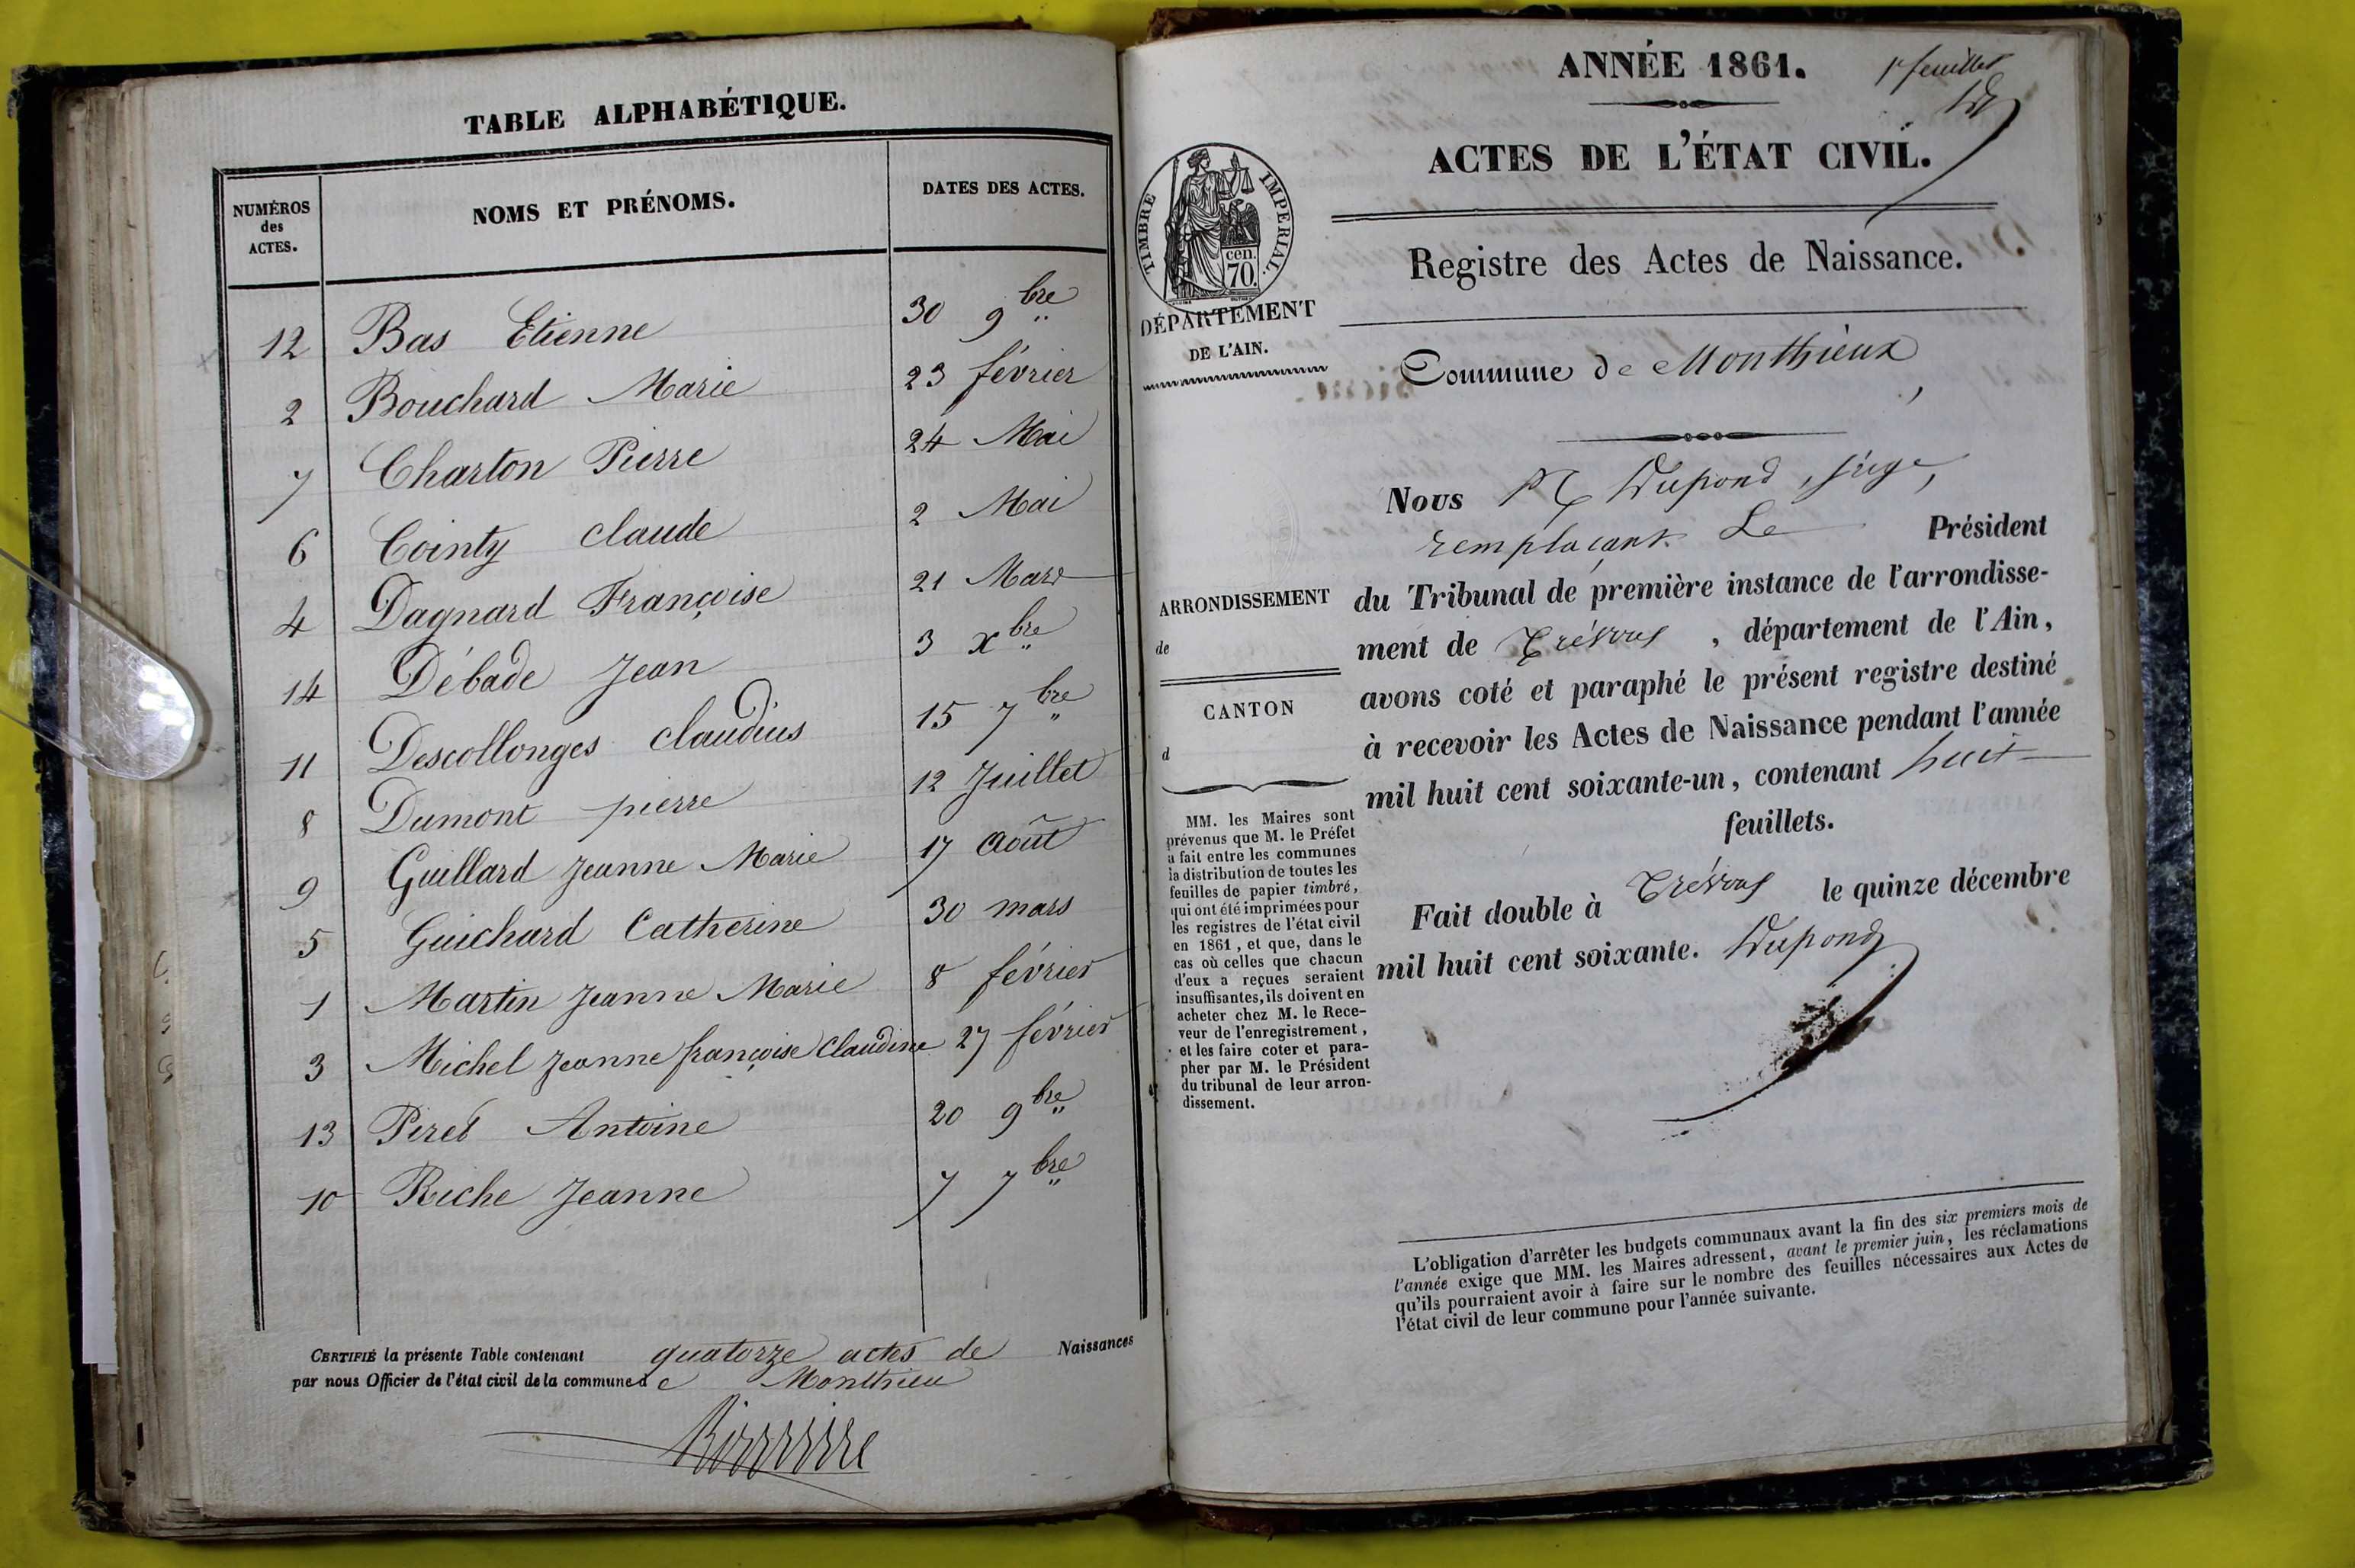 TABLE ALPHABÉTIQUE.
NUMÉROS des ACTES. NOMS ET PRÉNOMS. DATES DES ACTES.
12 Bas Etienne 30 9bre
2 Bouchard Marie 23 février
7 Charton Pierre 24 Mai
6 Cointy claude 2 Mai
4 Dagnard Françoise 21 Mars
14 Débade Jean 3 xbre
11 Descollonges claudius 15 7bre
8 Dumont pierre 12 Juillet
9 Guillard Jeanne Marie 17 Août
5 Guichard Catherine 30 mars
1 Martin Jeanne Marie 8 février
3 Michel Jeanne françoise Claudine 27 février
13 Antoine 20 9bre
10 Riche Jeanne 7 7bre
CERTIFIÉ la présente Table contenant quatorze actes de Naissances
par nous Officier de l'état civil de la commune de Monthieu
ANNÉE 1861.
1r feuillet
ACTES DE L'ÉTAT CIVIL.
TIMBRE IMPERIAL.
cen.
70.
DÉPARTEMENT
DE L'AIN.
Registre des Actes de Naissance.
Commune de Monthieux
Nous Dupond, juge,
remplaçant Le Président
du Tribunal de première instance de l'arrondisse-
ment de Trévoux, département de l'Ain,
avons coté et paraphé le présent registre destiné
à recevoir les Actes de Naissance pendant l'année
mil huit cent soixante-un, contenant huit
feuillets.
Fait double à Trévoux le quinze décembre
mil huit cent soixante. Dupond
ARRONDISSEMENT
de
CANTON
d
MM. les Maires sont
prévenus que M. le Préfet
a fait entre les communes
la distribution de toutes les
feuilles de papier timbré,
qui ont été imprimées pour
les registres de l'état civil
en 1861, et que, dans le
cas où celles que chacun
d'eux a reçues seraient
insuffisantes, ils doivent en
acheter chez M. le Rece-
veur de l'enregistrement,
et les faire coter et para-
pher par M. le Président
du tribunal de leur arron-
dissement.
L'obligation d'arrêter les budgets communaux avant la fin des six premiers mois de
l'année exige que MM. les Maires adressent, avant le premier juin, les réclamations
qu'ils pourraient avoir à faire sur le nombre des feuilles nécessaires aux Actes de
l'état civil de leur commune pour l'année suivante.